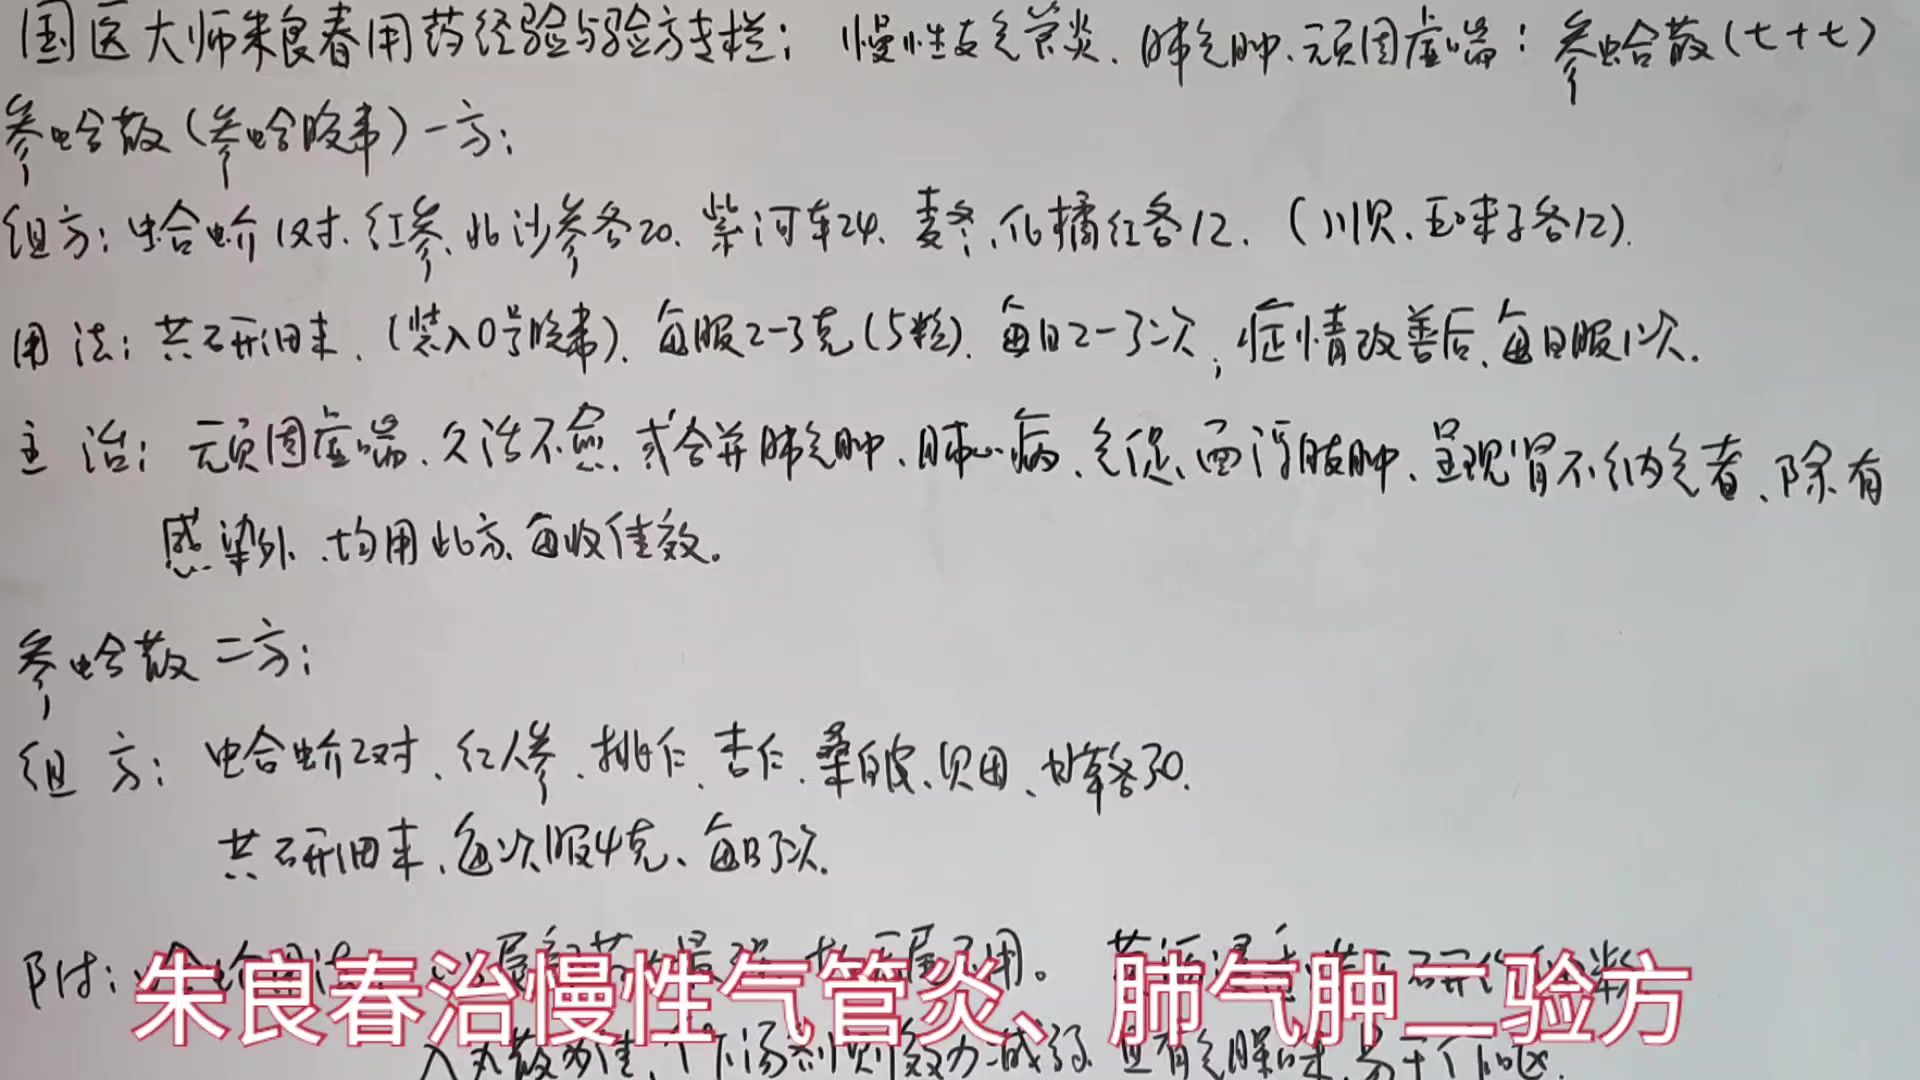 国医大师朱良春用药经验与验方专栏：慢性支气管炎、肺气肿、顽固虚喘：参蛤散（七十七）
参蛤散（参蛤胶囊）一方：
组方：蛤蚧1对、红参、北沙参各20、紫河车24、麦冬、化橘红各12、（川贝、五味子各12）.
用法：共研细末、（装入0号胶囊）、每服2-3克（5粒）、每日2-3次，症情改善后、每日服1次.
主治：顽固虚喘、久治不愈、或合并肺气肿、肺心病、气促、面浮肢肿、呈现肾不纳气者、除有
感染外、均用此方、每收佳效。
参蛤散二方：
组方：蛤蚧2对、红人参、桃仁、杏仁、桑白皮、贝母、甘草各30.
共研细末、每次服4克、每日3次.
附：
朱良春治慢性气管炎、肺气肿二验方
入丸散为佳，下汤剂则效力减弱、且有气腥味、